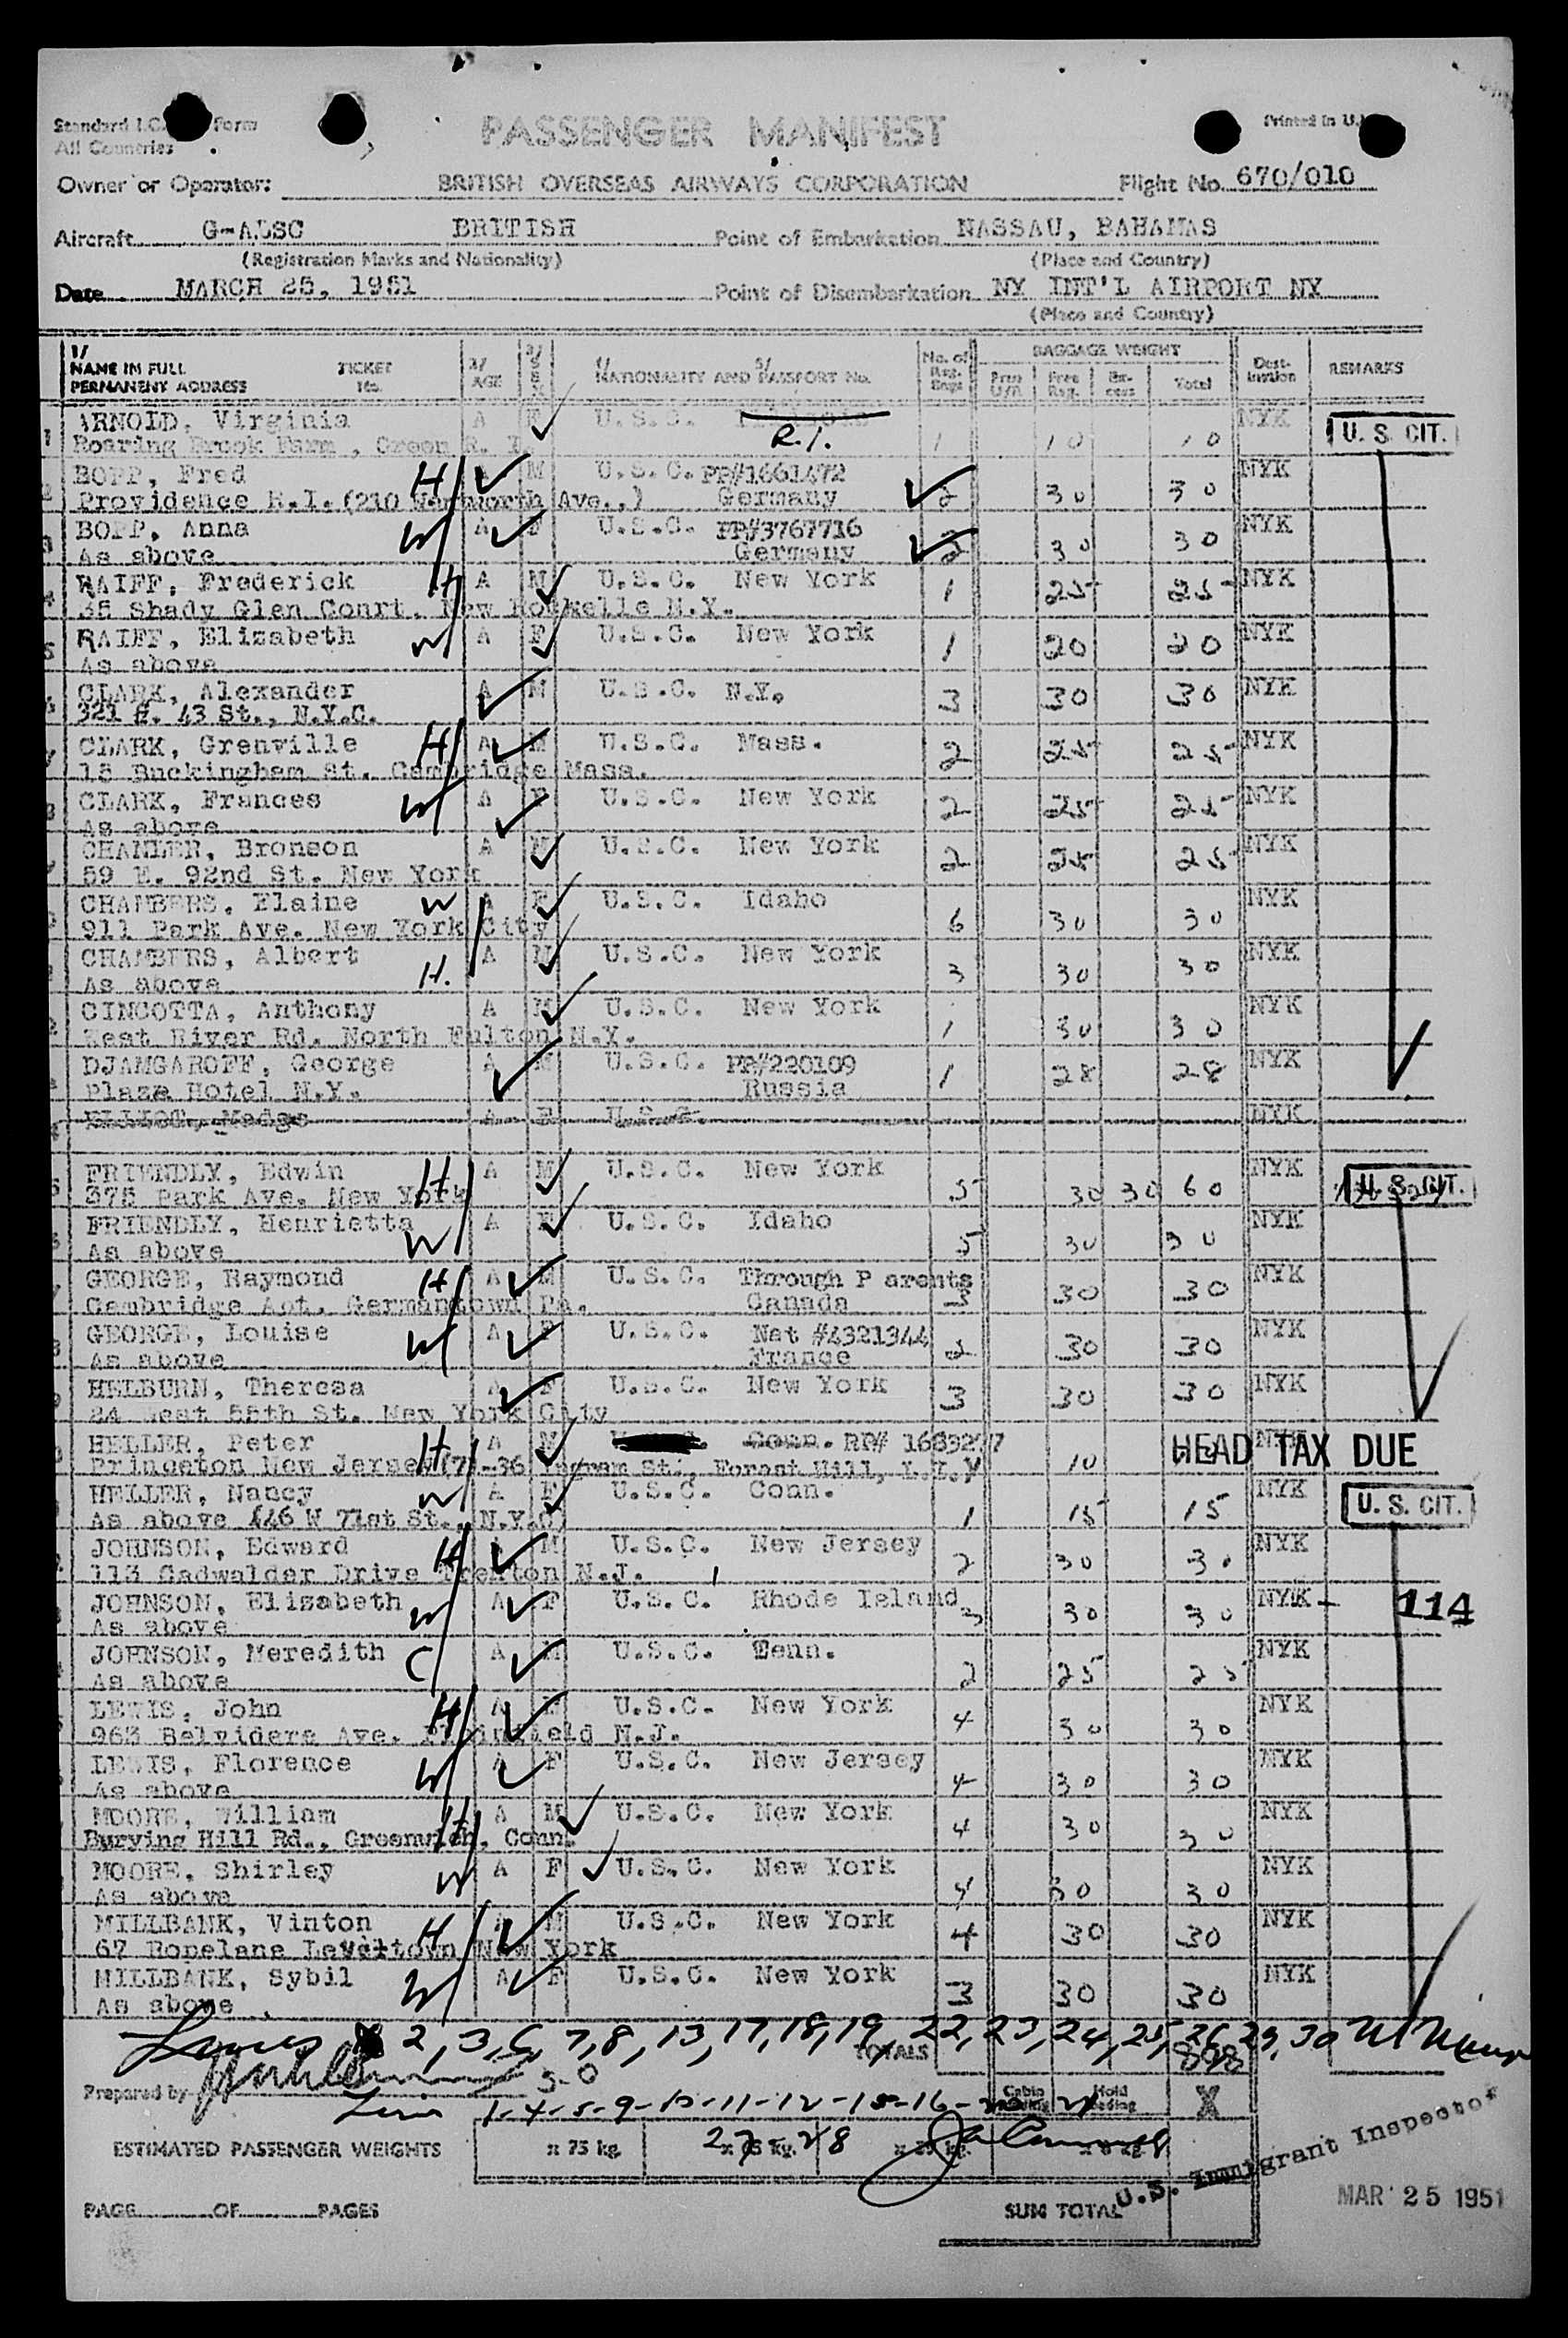 Standard I.C. Form
All Countries
PASSENGER MANIFEST
Printed in U.
Owner or Operator: BRITISH OVERSEAS AIRWAYS CORPORATION Flight No. 670/010
Aircraft G-ALSC BRITISH Point of Embarkation NASSAU, BAHAMAS
(Registration Marks and Nationality) (Place and Country)
Date MARCH 25, 1951 Point of Disembarkation NY INT'L AIRPORT NY
(Place and Country)
1/ NAME IN FULL PERMANENT ADDRESS TICKET No. 2/ AGE 3/ SEX 4/ 5/ NATIONALITY AND PASSPORT No. No. of Reg. Bags BAGGAGE WEIGHT Free Reg. Ex-cess Total Dest-ination REMARKS
1 ARNOLD, Virginia A F U.S.C. R.I. 1 10 10 NYK U. S. CIT.
Roaring Brook Farm, Green R. I.
BOPP, Fred H M U.S.C. PP#1661472 2 30 30 NYK
Providence R.I. (210 Wentworth Ave.,) Germany
BOPP, Anna W A F U.S.C. PP#3767716 2 30 30 NYK
As above Germany
4 RAIFF, Frederick H A M U.S.C. New York 1 25 25 NYK
35 Shady Glen Court, New Rockelle N.Y.
5 RAIFF, Elizabeth W A F U.S.C. New York 1 20 20 NYK
As above
CLARK, Alexander A M U.S.C. N.Y. 3 30 30 NYK
321 E. 43 St., N.Y.C.
CLARK, Grenville H A M U.S.C. Mass. 2 25 25 NYK
15 Buckingham St. Cambridge Mass.
CLARK, Frances W A F U.S.C. New York 2 25 25 NYK
As above
CHANLER, Bronson A M U.S.C. New York 2 25 25 NYK
59 E. 92nd St. New York
CHAMBERS, Elaine W A F U.S.C. Idaho 6 30 30 NYK
911 Park Ave. New York City
CHAMBERS, Albert H. A M U.S.C. New York 3 30 30 NYK
As above
CINCOTTA, Anthony A M U.S.C. New York 1 30 30 NYK
West River Rd. North Fulton N.Y.
DJAMGAROFF, George A M U.S.C. PP#220109 1 28 28 NYK
Plaza Hotel N.Y. Russia
ELLIOT, Madge A F U.S.C. NYK
FRIENDLY, Edwin H A M U.S.C. New York 5 30 30 60 NYK U. S. CIT.
375 Park Ave. New York
FRIENDLY, Henrietta W A F U.S.C. Idaho 5 30 30 NYK
As above
GEORGE, Raymond H A M U.S.C. Through P arents 3 30 30 NYK
Cambridge Apt. Germantown Pa. Canada
GEORGE, Louise W A F U.S.C. Nat #4321344 2 30 30 NYK
As above France
HELBURN, Theresa A F U.S.C. New York 3 30 30 NYK
24 West 55th St. New York City
HELLER, Peter H A M Conn. PP# 1683277 10 HEAD TAX DUE
Princeton New Jersey (71-36 Ingram St., Forest Hill, L.I.)
HELLER, Nancy W A F U.S.C. Conn. 1 15 15 NYK U. S. CIT.
As above 146 W 71st St., N.Y.C.
JOHNSON, Edward H M U.S.C. New Jersey 2 30 30 NYK
113 Cadwalder Drive Trenton N.J.
JOHNSON, Elizabeth W A F U.S.C. Rhode Island 3 30 30 NYK 114
As above
JOHNSON, Meredith C A M U.S.C. Tenn. 2 25 25 NYK
As above
LEWIS, John H A M U.S.C. New York 4 30 30 NYK
963 Belvidere Ave. Plainfield N.J.
LEWIS, Florence W A F U.S.C. New Jersey 4 30 30 NYK
As above
MOORE, William H A M U.S.C. New York 4 30 30 NYK
Burying Hill Rd., Greenwich, Conn.
MOORE, Shirley W A F U.S.C. New York 4 30 30 NYK
As above
MILLBANK, Vinton H A M U.S.C. New York 4 30 30 NYK
67 Ropelane Levettown New York
MILLBANK, Sybil W A F U.S.C. New York 3 30 30 NYK
As above
Lines 2, 3, 6, 7, 8, 13, 17, 18, 19, 22, 23, 24, 25, 26, 29, 30
TOTALS 898
Prepared by
1-4-5-9-10-11-12-15-16-20 21
Cabin Hold X
27-28
ESTIMATED PASSENGER WEIGHTS x 75 kg.
U.S. Immigrant Inspector
MAR 25 1951
PAGE OF PAGES SUM TOTAL